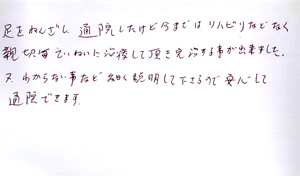 足をねんざし、通院したけど今までは リハビリなどなく
親切ていねいに治療して頂き完治する事が出来ました。
又、わからない事など細く説明して下さるので安心して
通院できます。